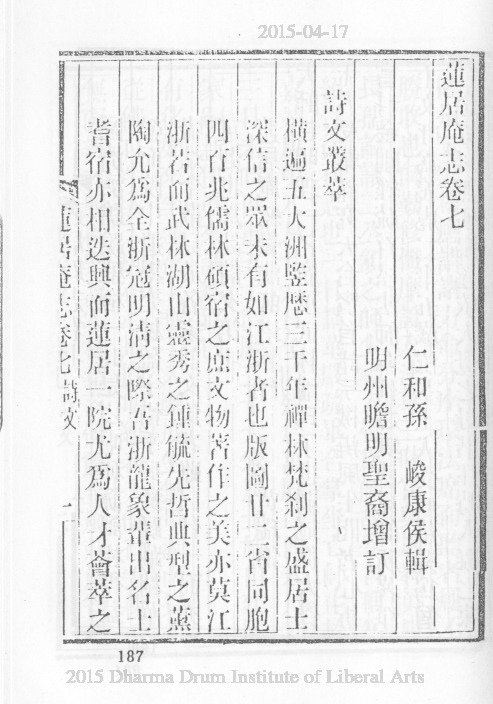 2015-04-17
蓮居庵志卷七
仁和孫　峻康侯輯
明州瞻明聖裔增訂
詩文叢萃
橫遍五大洲豎歷三千年禪林梵剎之盛居士
深信之眾未有如江浙者也版圖廿二省同胞
四百兆儒林碩宿之庶文物著作之美亦莫江
浙若而武林湖山靈秀之鍾毓先哲典型之薰
陶允為全浙冠明清之際吾浙龍象輩出名士
耆宿亦相迭興而蓮居一院尤為人才薈萃之
蓮居庵志卷七　詩文　一
187
2015 Dharma Drum Institute of Liberal Arts